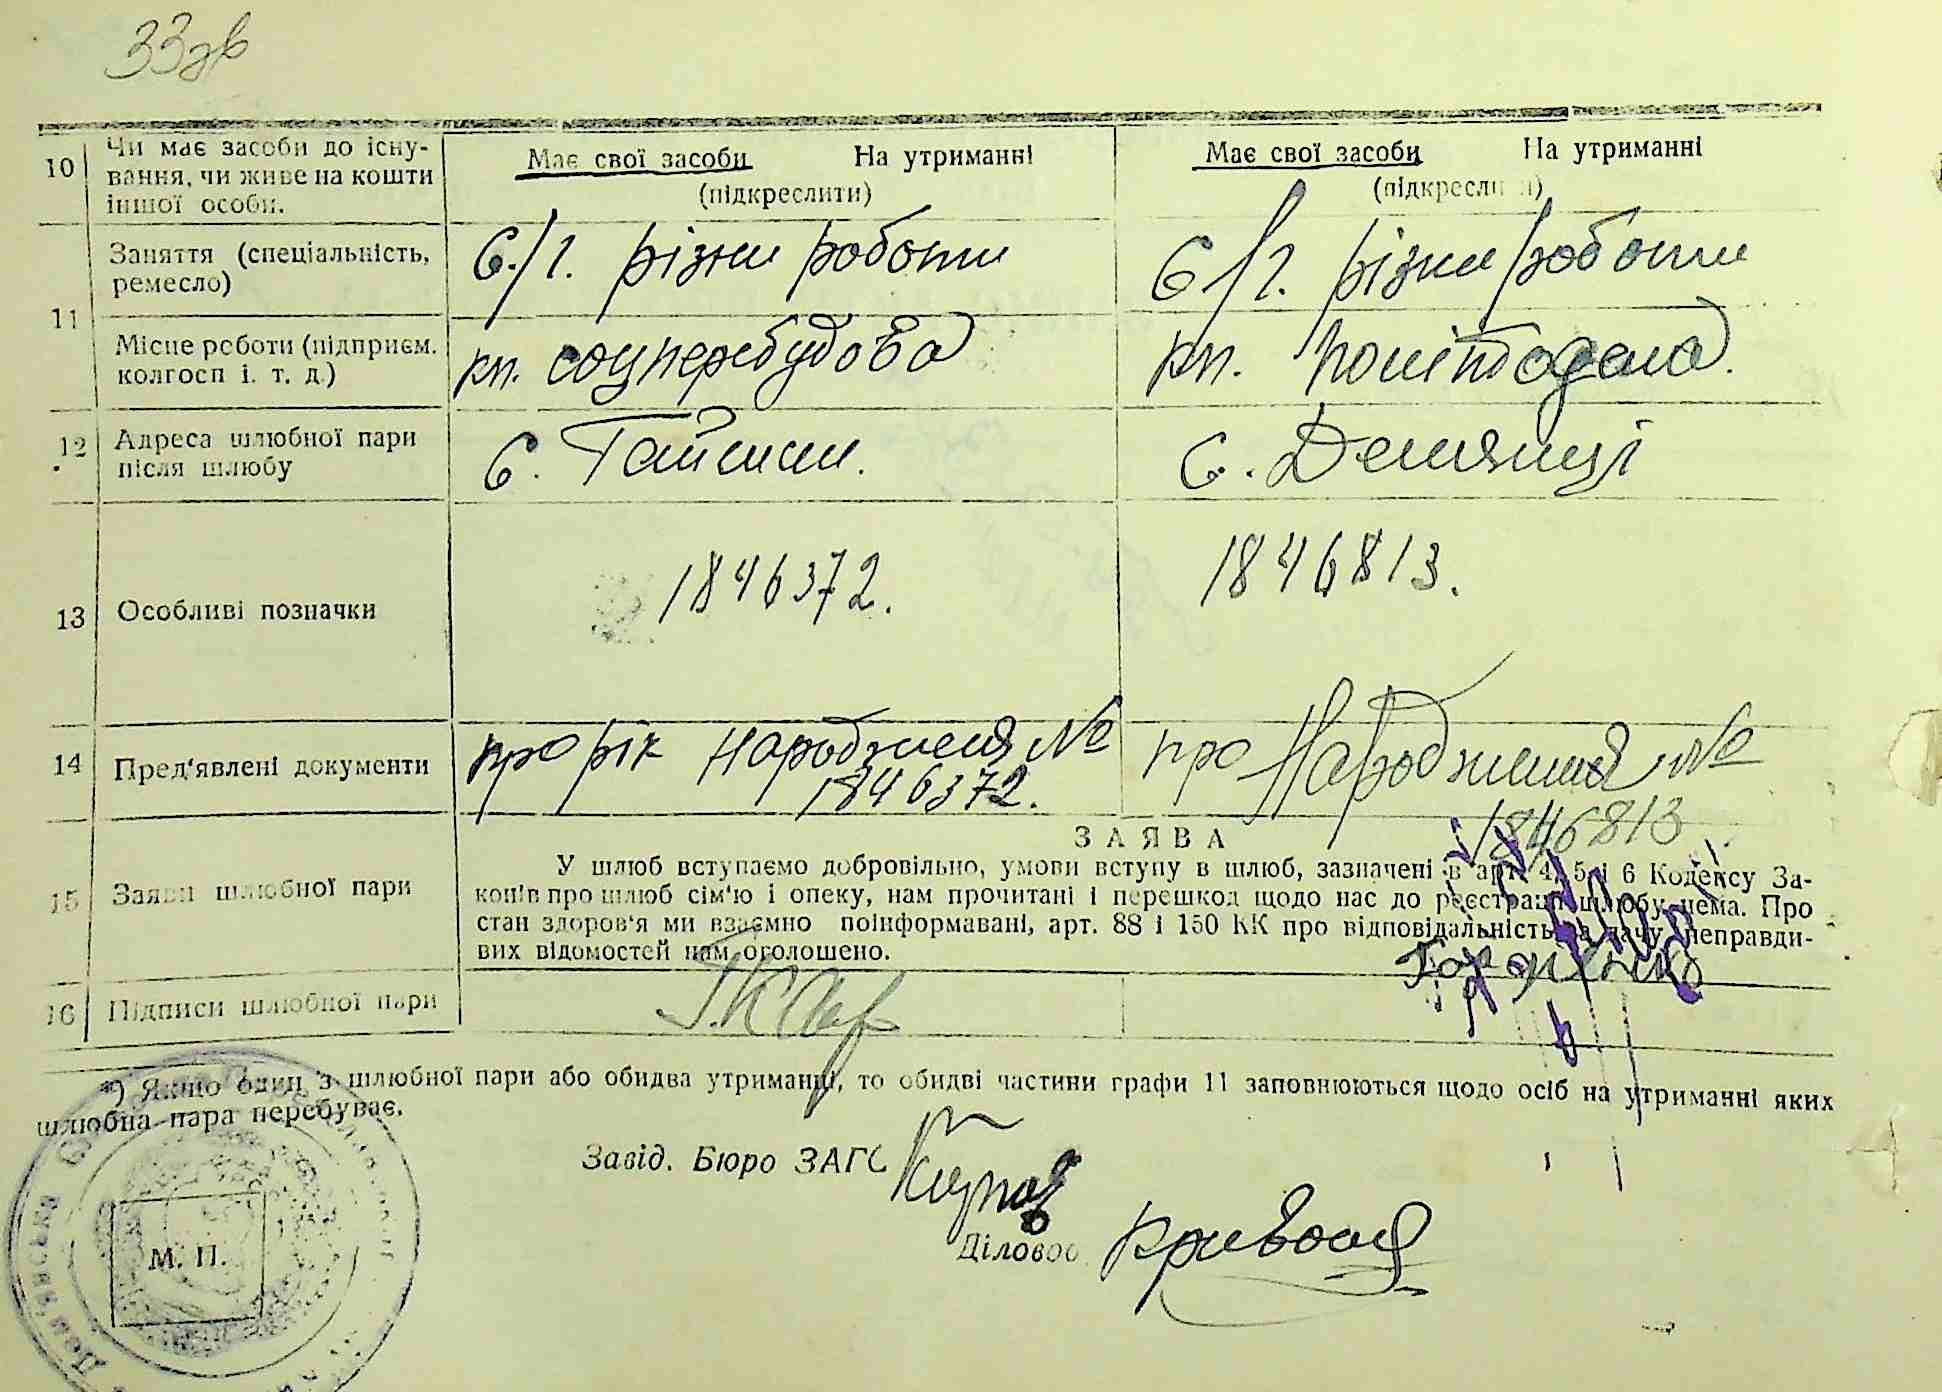 33зв
10 Чи має засоби до існу- Має свої засоби На утриманні Має свої засоби На утриманні
вання, чи живе на кошти (підкреслити) (підкреслити)
іншої особи.
11 Заняття (спеціальність, С/г. різни роботи С/г. різни роботи
ремесло)
Місце роботи (підприєм. кп. соцперебудова кп. Політодела.
колгосп і. т. д.)
12 Адреса шлюбної пари с. Гайшин. с. Демянці
після шлюбу
13 Особливі позначки 1846372. 1846813.
14 Пред'явлені документи про рік народження № про Народження №
1846372. 1846813
ЗАЯВА
15 Заяви шлюбної пари
У шлюб вступаємо добровільно, умови вступу в шлюб, зазначені в арт. 4, 5 і 6 Кодексу За-
конів про шлюб сім'ю і опеку, нам прочитані і перешкод щодо нас до реєстрації шлюбу нема. Про
стан здоров'я ми взаємно поінформавані, арт. 88 і 150 КК про відповідальність за дачу неправди-
вих відомостей нам оголошено.
16 Підписи шлюбної пари
*) Якщо один з шлюбної пари або обидва утриманці, то обидві частини графи 11 заповнюються щодо осіб на утриманні яких
шлюбна пара перебуває.
Завід. Бюро ЗАГС
Діловод
М. П.